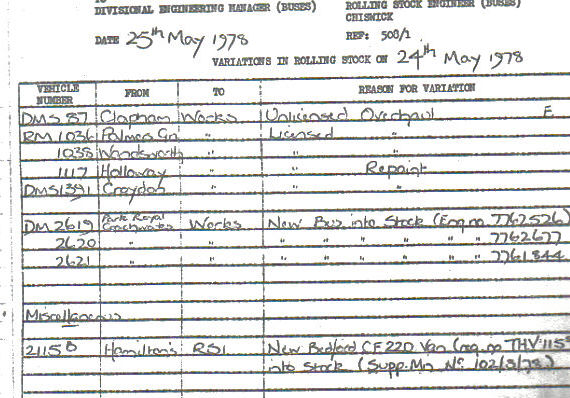 DIVISIONAL ENGINEERING MANAGER (BUSES) ROLLING STOCK ENGINEER (BUSES)
CHISWICK
DATE 25th May 1978 REF: 508/1
VARIATIONS IN ROLLING STOCK ON 24th May 1978
VEHICLE NUMBER FROM TO REASON FOR VARIATION
DMS 87 Clapham Works Unlicensed Overhaul E
RM 1036 Palmers Gn " Licensed "
1038 Wandsworth " "
1117 Holloway " " Repaint
DMS1391 Croydon " " "
DM2619 Park Royal Coachworks Works New Bus into Stock (Eng no. 7762526)
2620 " " " " " " " " 7762677
2621 " " " " " " " " 7761844
Miscellaneous
2115B Hamilton's RS1 New Bedford CF 22D Van (reg. no THV 115S
into Stock (Supp. Min No. 102/3/78)